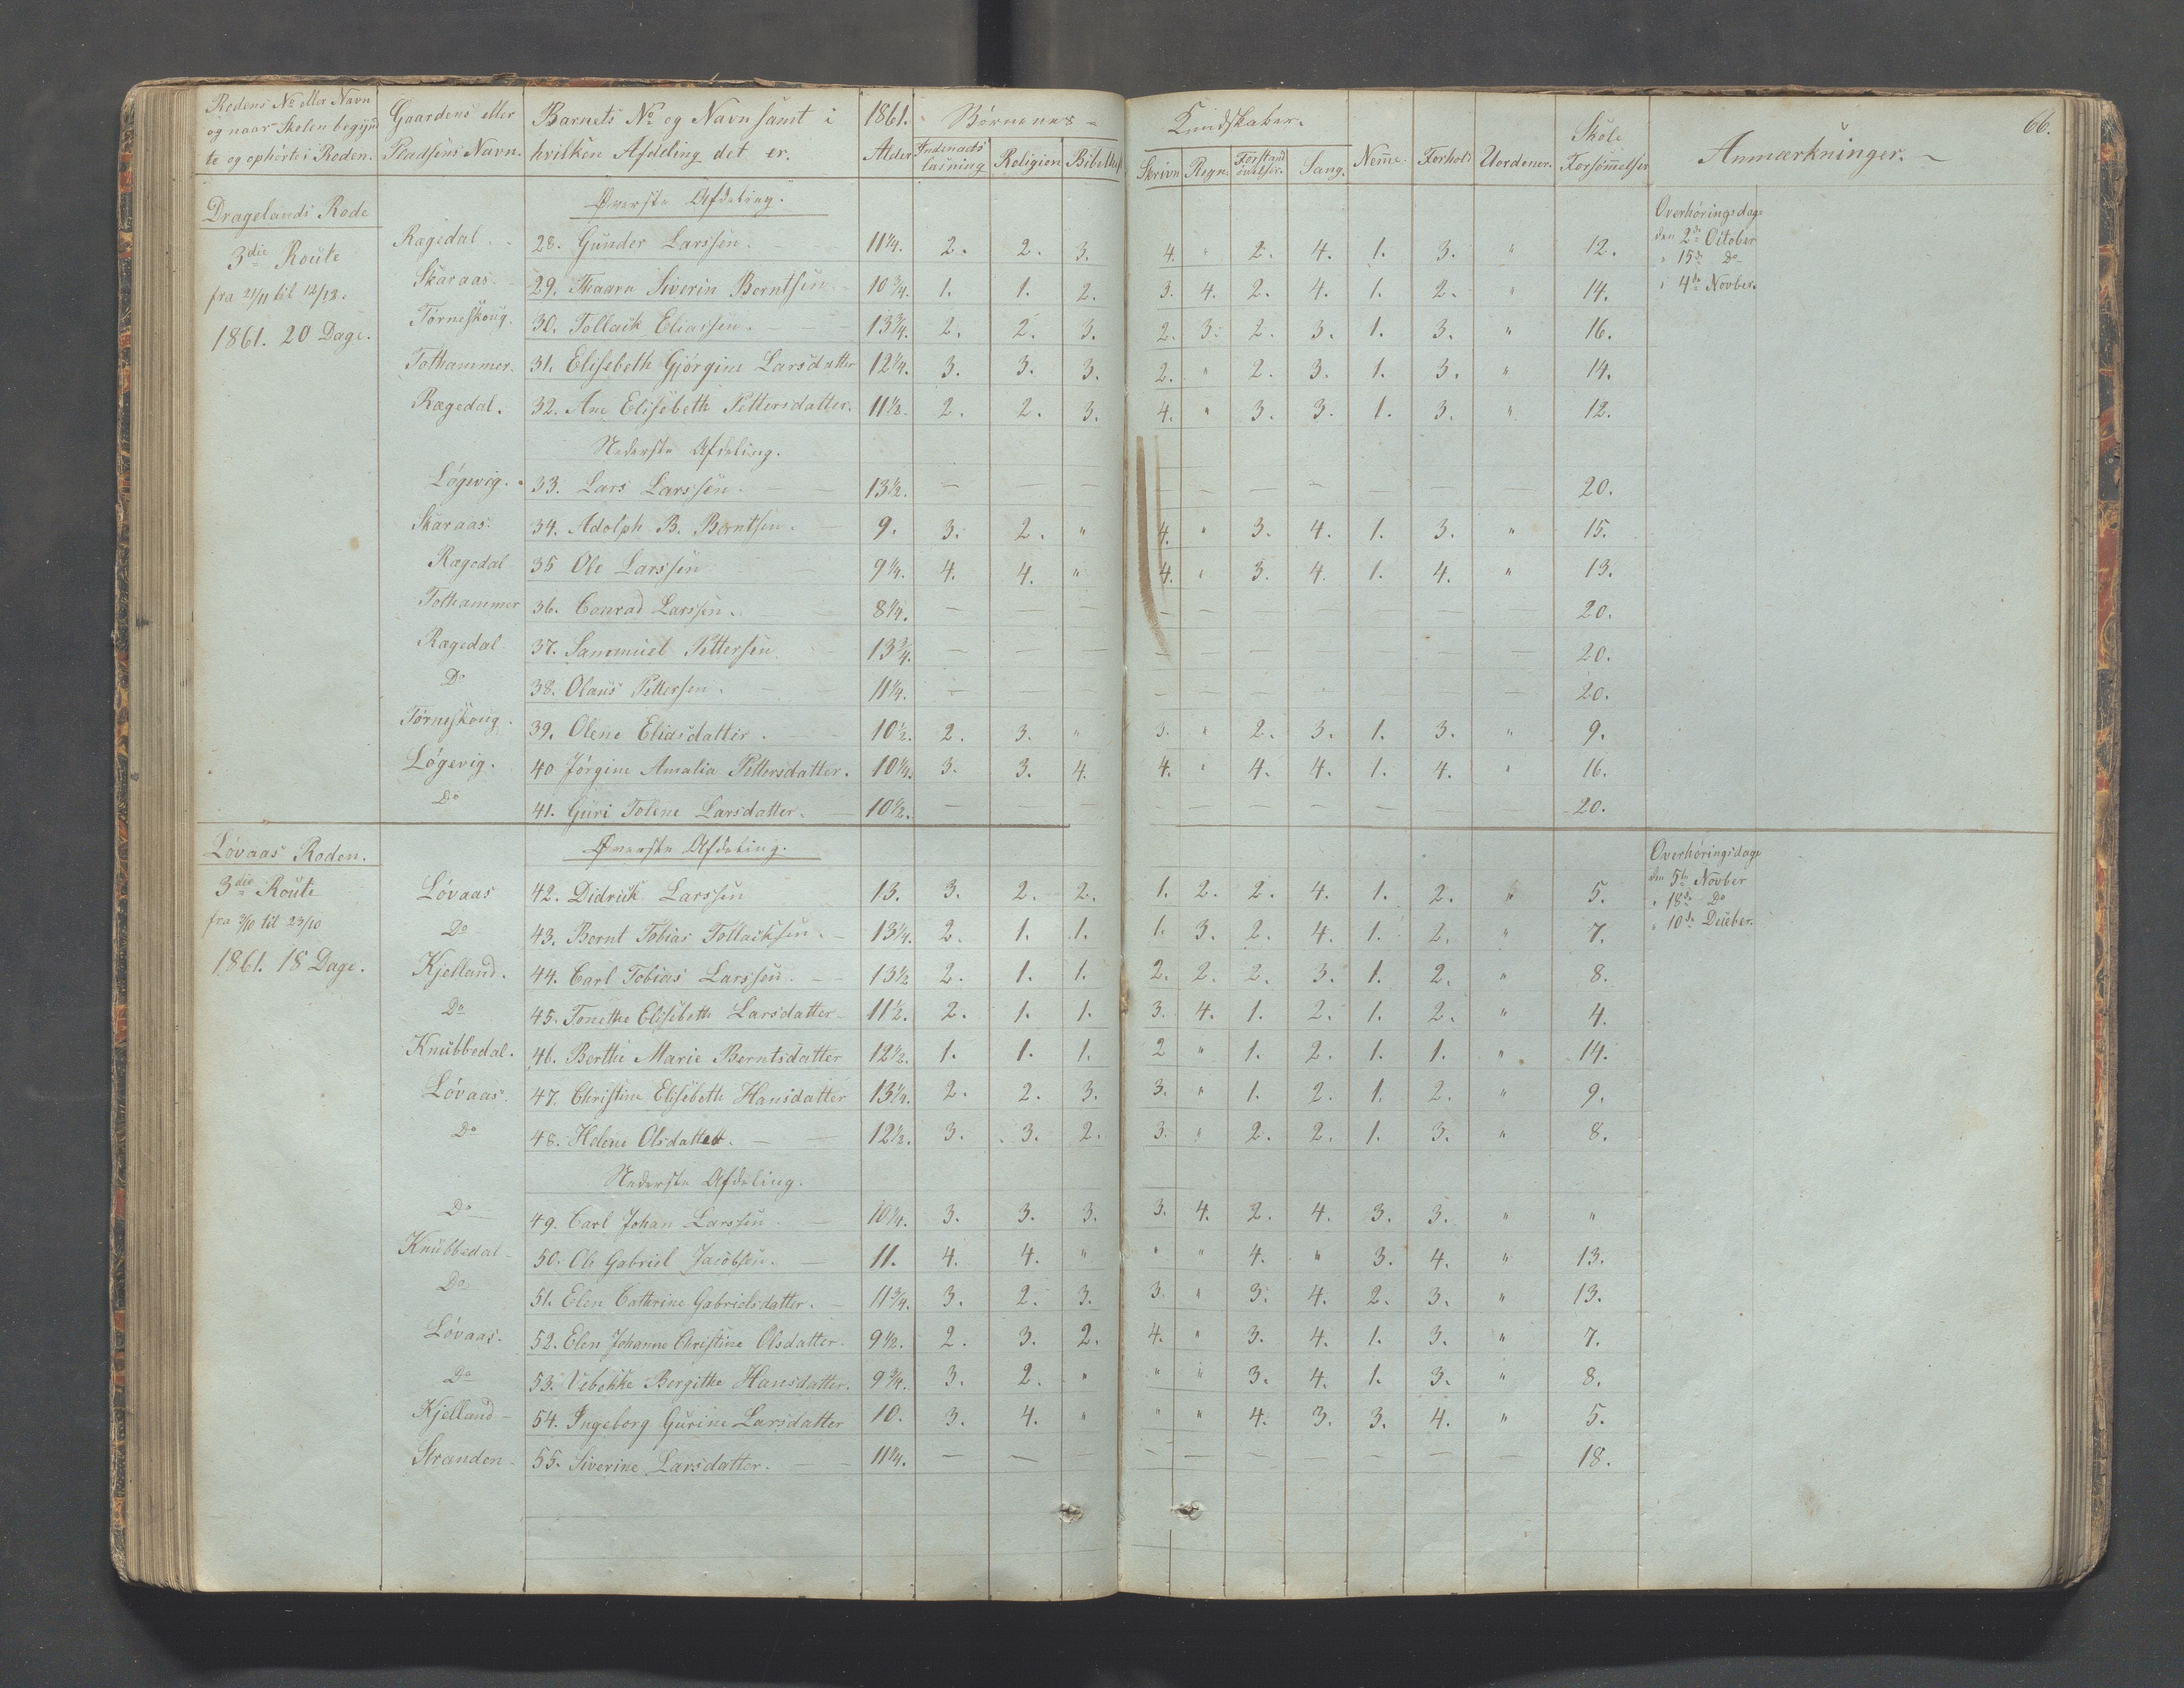 66.
Rodens No eller Navn og naar Skolen begynd te og ophørte i Roden. | Gaardens eller Pladsens Navn. | Barnets No og Navn samt i hvilken Afdeling det er. | 1861. Alder | Børnenes Kundskaber. | Religion | Skrivn | Regn. | Forstand øvelser. | Sang. | Nemme. | Forhold | Uordener. | Skole Forsømmelser | Anmærkninger.
Dragelands Rode | Øverste Afdeling. | Overhøringsdage
3die Route | Ragedal | 28. Gunder Larssen. | 11¼. | 2. | 2. | 3. | 4. | " | 2. | 4. | 1. | 3. | " | 12. | den 2de October
" 15de Do
fra 21/11 til 12/12. | Skaraas | 29. Thaara Siverin Berntsen | 10¾. | 1. | 1. | 2. | 3. | 4. | 2. | 4. | 1. | 2. | " | 14. | " 4de Novber.
1861. 20 Dage. | Tørneskoug. | 30. Tollack Eliassen. | 13¾. | 2. | 2. | 3. | 2. | 3. | 2. | 3. | 1. | 3. | " | 16.
Tothammer. | 31. Elisebeth Gjørgine Larsdatter | 12¼. | 3. | 3. | 3. | 2. | " | 2. | 3. | 1. | 3. | " | 14.
Rægedal. | 32. Ane Elisebeth Pettersdatter. | 11½. | 2. | 2. | 3. | 4. | " | 3. | 3. | 1. | 3. | " | 12.
Nederste Afdeling.
Løgevig. | 33. Lars Larssen. | 13½. | — | — | — | — | — | — | — | — | — | 20.
Skaraas. | 34. Adolph B. Berntsen. | 9. | 3. | 2. | " | 4. | " | 3. | 4. | 1. | 3. | " | 15.
Rægedal | 35 Ole Larssen | 9¼. | 4. | 4. | " | 4. | " | 3. | 4. | 1. | 4. | " | 13.
Tothammer | 36. Conrad Larssen. | 8¼. | — | — | — | — | — | — | — | — | 20.
Rægedal | 37. Sammuel Pettersen | 13¾. | — | — | — | — | — | — | — | — | 20.
Do | 38. Olaus Pettersen. | 11¼. | — | — | — | — | — | — | 20.
Tørneskoug. | 39. Olene Eliasdatter. | 10½. | 2. | 3. | " | 3. | " | 2. | 3. | 1. | 3. | " | 9.
Løgevig. | 40 Jørgine Amalia Pettersdatter. | 10¼. | 3. | 3. | 4. | 4. | " | 4. | 4. | 1. | 4. | " | 16.
Do | 41. Guri Tolene Larsdatter. | 10½. | — | — | — | — | — | — | — | 20.
Løvaas Roden. | Øverste Afdeling. | Overhøringsdage
3die Route | Løvaas | 42. Didrick Larssen | 13. | 3. | 2. | 2. | 1. | 2. | 2. | 4. | 1. | 2. | " | 5. | den 5te Novber
" 18de Do
fra 3/10 til 23/10 | Do | 43. Bernt Tobias Tollacksen. | 13¼. | 2. | 1. | 1. | 1. | 3. | 2. | 4. | 1. | 2. | " | 7. | " 10de Decber.
1861. 18 Dage. | Kjelland. | 44. Carl Tobias Larssen. | 13½ | 2. | 1. | 1. | 2. | 2. | 2. | 3. | 1. | 2. | " | 8.
Do | 45. Tonethe Elisebeth Larsdatter | 11½. | 2. | 1. | 1. | 3. | 4. | 1. | 2. | 1. | 2. | " | 4.
Knubbedal. | 46. Berthe Marie Berntsdatter | 12½. | 1. | 1. | 1. | 2 | " | 1. | 2. | 1. | 1. | " | 14.
Løvaas. | 47. Christine Elisebeth Hansdatter | 13¼. | 2. | 2. | 3. | 3. | " | 1. | 2. | 1. | 2. | " | 9.
Do | 48. Helene Olsdatter. | 12½. | 3. | 3. | 2. | 3. | " | 2. | 2. | 1. | 3. | " | 8.
Nederste Afdeling.
Do | 49. Carl Johan Larssen | 10¼. | 3. | 3. | 3. | 3. | 4. | 2. | 4. | 3. | 3. | " | "
Knubbedal | 50. Ole Gabriel Jacobsen. | 11. | 4. | 4. | " | " | " | 4. | " | 3. | 4. | " | 13.
Do | 51. Elen Cathrine Gabrielsdatter. | 11¾. | 3. | 2. | 3. | 3. | " | 3. | 4. | 2. | 3. | " | 13.
Løvaas. | 52. Elen Johanne Christine Olsdatter. | 9½. | 2. | 3. | 2. | 4. | " | 3. | 4. | 1. | 3. | " | 7.
Do | 53. Vebekke Bergithe Hansdatter. | 9¾. | 3. | 2. | " | " | " | 3. | 4. | 1. | 3. | " | 8.
Kjelland | 54. Ingeborg Gurine Larsdatter | 10. | 3. | 4. | " | " | " | 4. | 3. | 3. | 4. | " | 5.
Stranden | 55. Siverine Larsdatter. | 11¼. | — | — | — | — | — | — | — | — | — | 18.